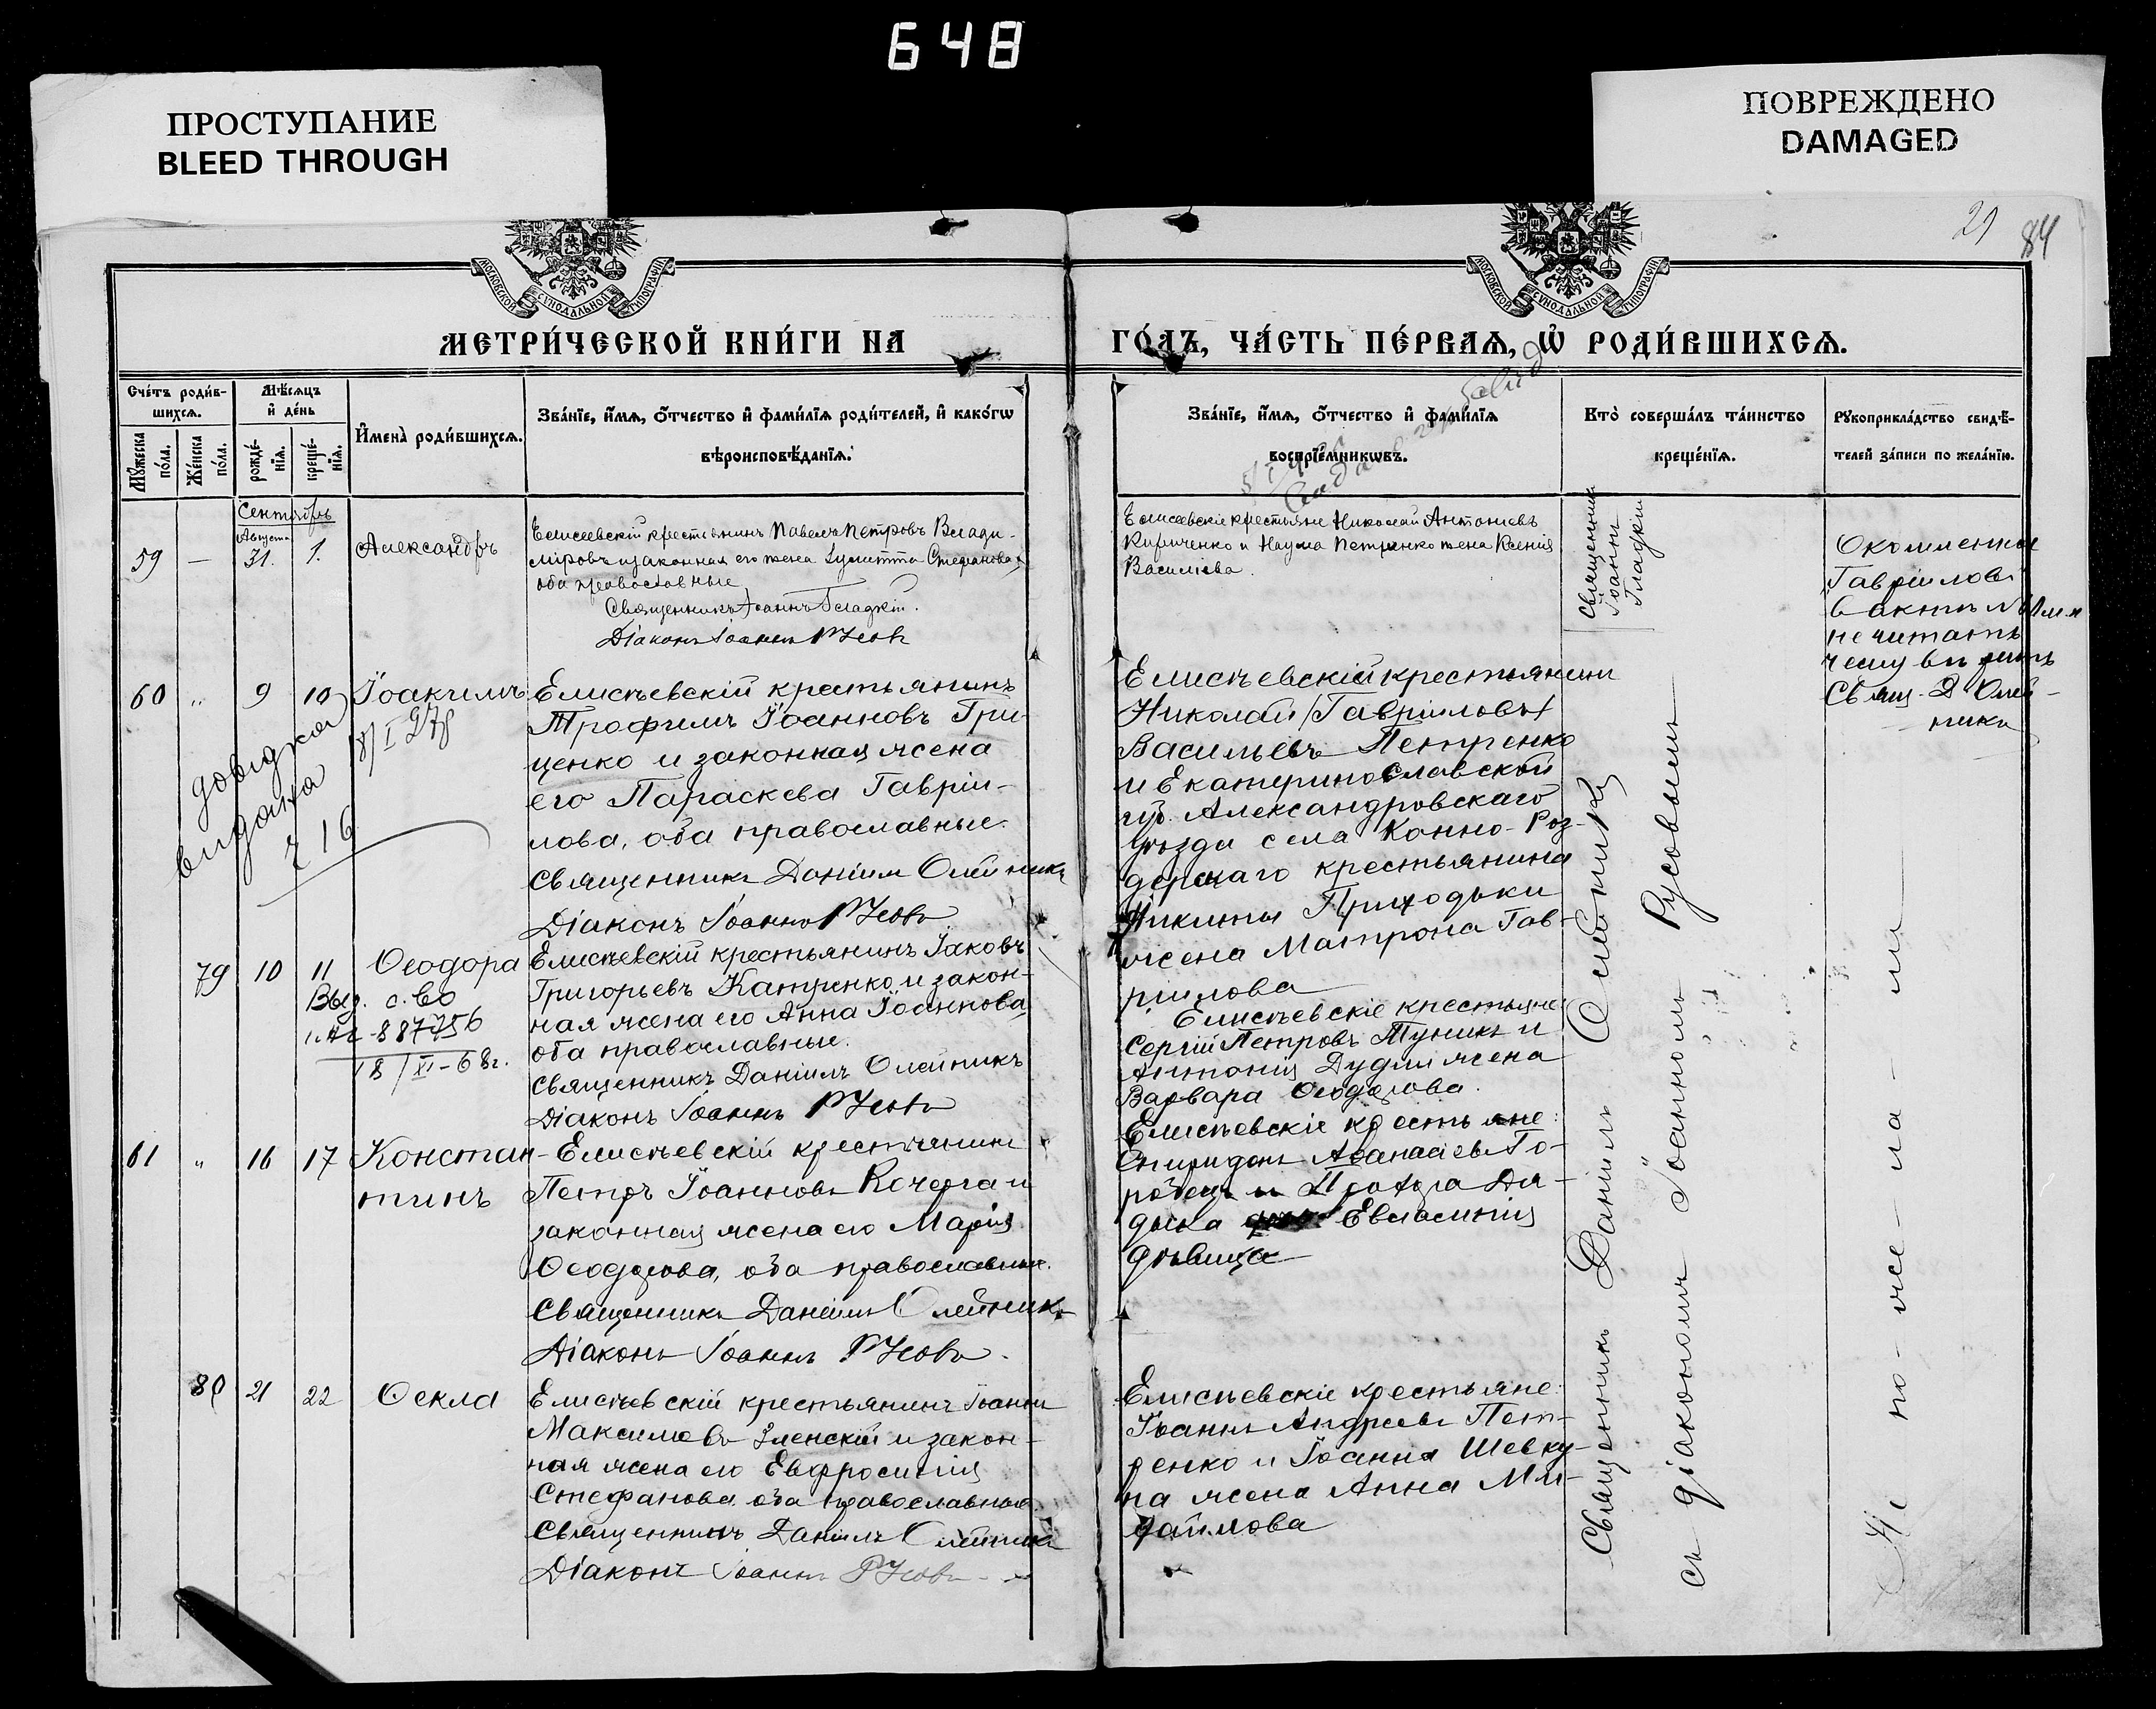 648
ПРОСТУПАНИЕ
BLEED THROUGH
ПОВРЕЖДЕНО
DAMAGED
84
МОСКОВСКОЙ СѴНОДАЛЬНОЙ ТИПОГРАФІИ
МОСКОВСКОЙ СѴНОДАЛЬНОЙ ТИПОГРАФІИ
МЕТРИ́ЧЕСКОЙ КНИ́ГИ НА
ГО́ДЪ, ЧА́СТЬ ПЕ́РВАѦ, Ѡ҆ РОДИ́ВШИХСѦ.
Сче́тъ роди́в-
шихсѧ.
Мꙋ́жеска
по́ла.
Же́нска
по́ла.
Мѣ́сѧцъ
и҆ де́нь
рожде́-
нїѧ.
креще́-
нїѧ.
И҆мена̀ роди́вшихсѧ.
Зва́нїе, и҆́мѧ, ѻ҆́тчество и҆ фами́лїѧ роди́телей, и҆ како́гѡ
вѣроисповѣ́данїѧ.
Зва́нїе, и҆́мѧ, ѻ҆́тчество и҆ фами́лїѧ
воспрїе́мникѡвъ.
Кто̀ соверша́лъ та́инство
креще́нїѧ.
Рꙋкоприкла́дство свидѣ́-
телей за́писи по жела́нїю.
Сентябрь
Августа
59 — 31. 1. Александръ
Елисеевскій крестьянинъ Павелъ Петровъ Влади-
міровъ и законная его жена Іулитта Стефанова,
оба православные
Священникъ Іоаннъ Гладкій.
Діаконъ Іоаннъ Русовъ
Елисеевскіе крестьяне Николай Антоніевъ
Кириченко и Наума Петренко жена Ксенія
Василіева.
Священникъ
Іоаннъ
Гладкій
Гавріиловъ
въ актѣ
не читать
чему вѣрить
Свящ. Д. Олей-
никъ
60 „ 9 10 Іоакимъ
18/I
довідка
видана
16
Елисѣевскій крестьянинъ
Трофимъ Іоанновъ Гри-
ценко и законная жена
его Параскева Гавріи-
лова, оба православные.
Священникъ Даніилъ Олейникъ
Діаконъ Іоаннъ Русовъ
Елисѣевскій крестьянинъ
Николай (Гавріиловъ)
Васильевъ Петренко
и Екатеринославской
губ. Александровскаго
уѣзда села Конно-Роз-
дорскаго крестьянина
Никиты Приходьки
жена Матрона Гав-
ріилова
79 10 11 Ѳеодора
Выд. с.во
887756
18/XI-68г.
Елисѣевскій крестьянинъ Іаковъ
Григорьевъ Катренко и закон-
ная жена его Анна Іоаннова
оба православные.
Священникъ Даніилъ Олейникъ
Діаконъ Іоаннъ Русовъ
Елисѣевскіе крестьяне:
Сергій Петровъ Туникъ и
Антонія Дудки жена
Варвара Ѳеодорова.
61 „ 16 17 Констан-
тинъ
Елисѣевскій крестьянинъ
Петръ Іоанновъ Кочерга и
законная жена его Марія
Ѳеодорова, оба православные.
Священникъ Даніилъ Олейникъ
Діаконъ Іоаннъ Русовъ.
Елисѣевскіе крестьяне:
Спиридонъ Аѳанасіевъ Го-
робецъ и
Евлампія
дѣвица
80 21 22 Ѳекла
Елисѣевскій крестьянинъ Іоаннъ
Максимовъ и закон-
ная жена его Евфросинія
Стефанова оба православные.
Священникъ Даніилъ Олейникъ
Діаконъ Іоаннъ Русовъ
Елисѣевскіе крестьяне:
Іоаннъ Андреевъ Пет-
ренко и Іоанна Шевку-
на жена Анна Ми-
хаилова
Священникъ Даніилъ Олейникъ
съ діакономъ Іоанномъ Русовымъ